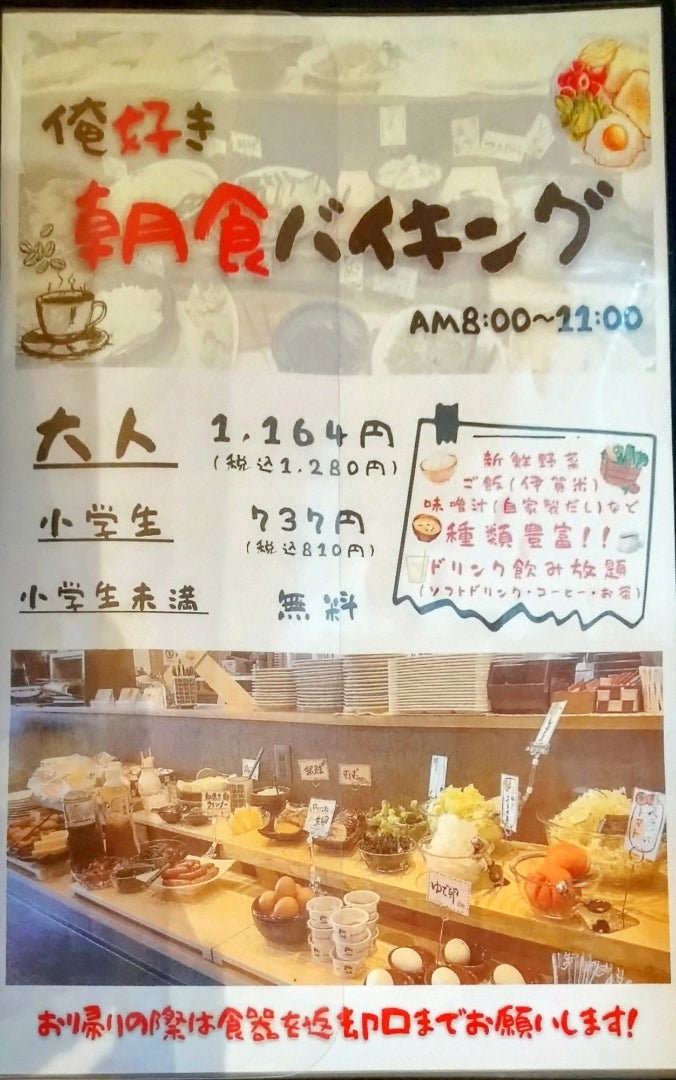 俺好き
朝食バイキング
AM8:00～11:00
大人 1,164円
(税込1,280円)
小学生 737円
(税込810円)
小学生未満 無料
新鮮野菜
ご飯(伊賀米)
味噌汁(自家製だし)など
種類豊富!!
ドリンク飲み放題
(ソフトドリンク・コーヒー・お茶)
銀鮭
さば
ゆで卵
お帰りの際は食器を返却口までお願いします!